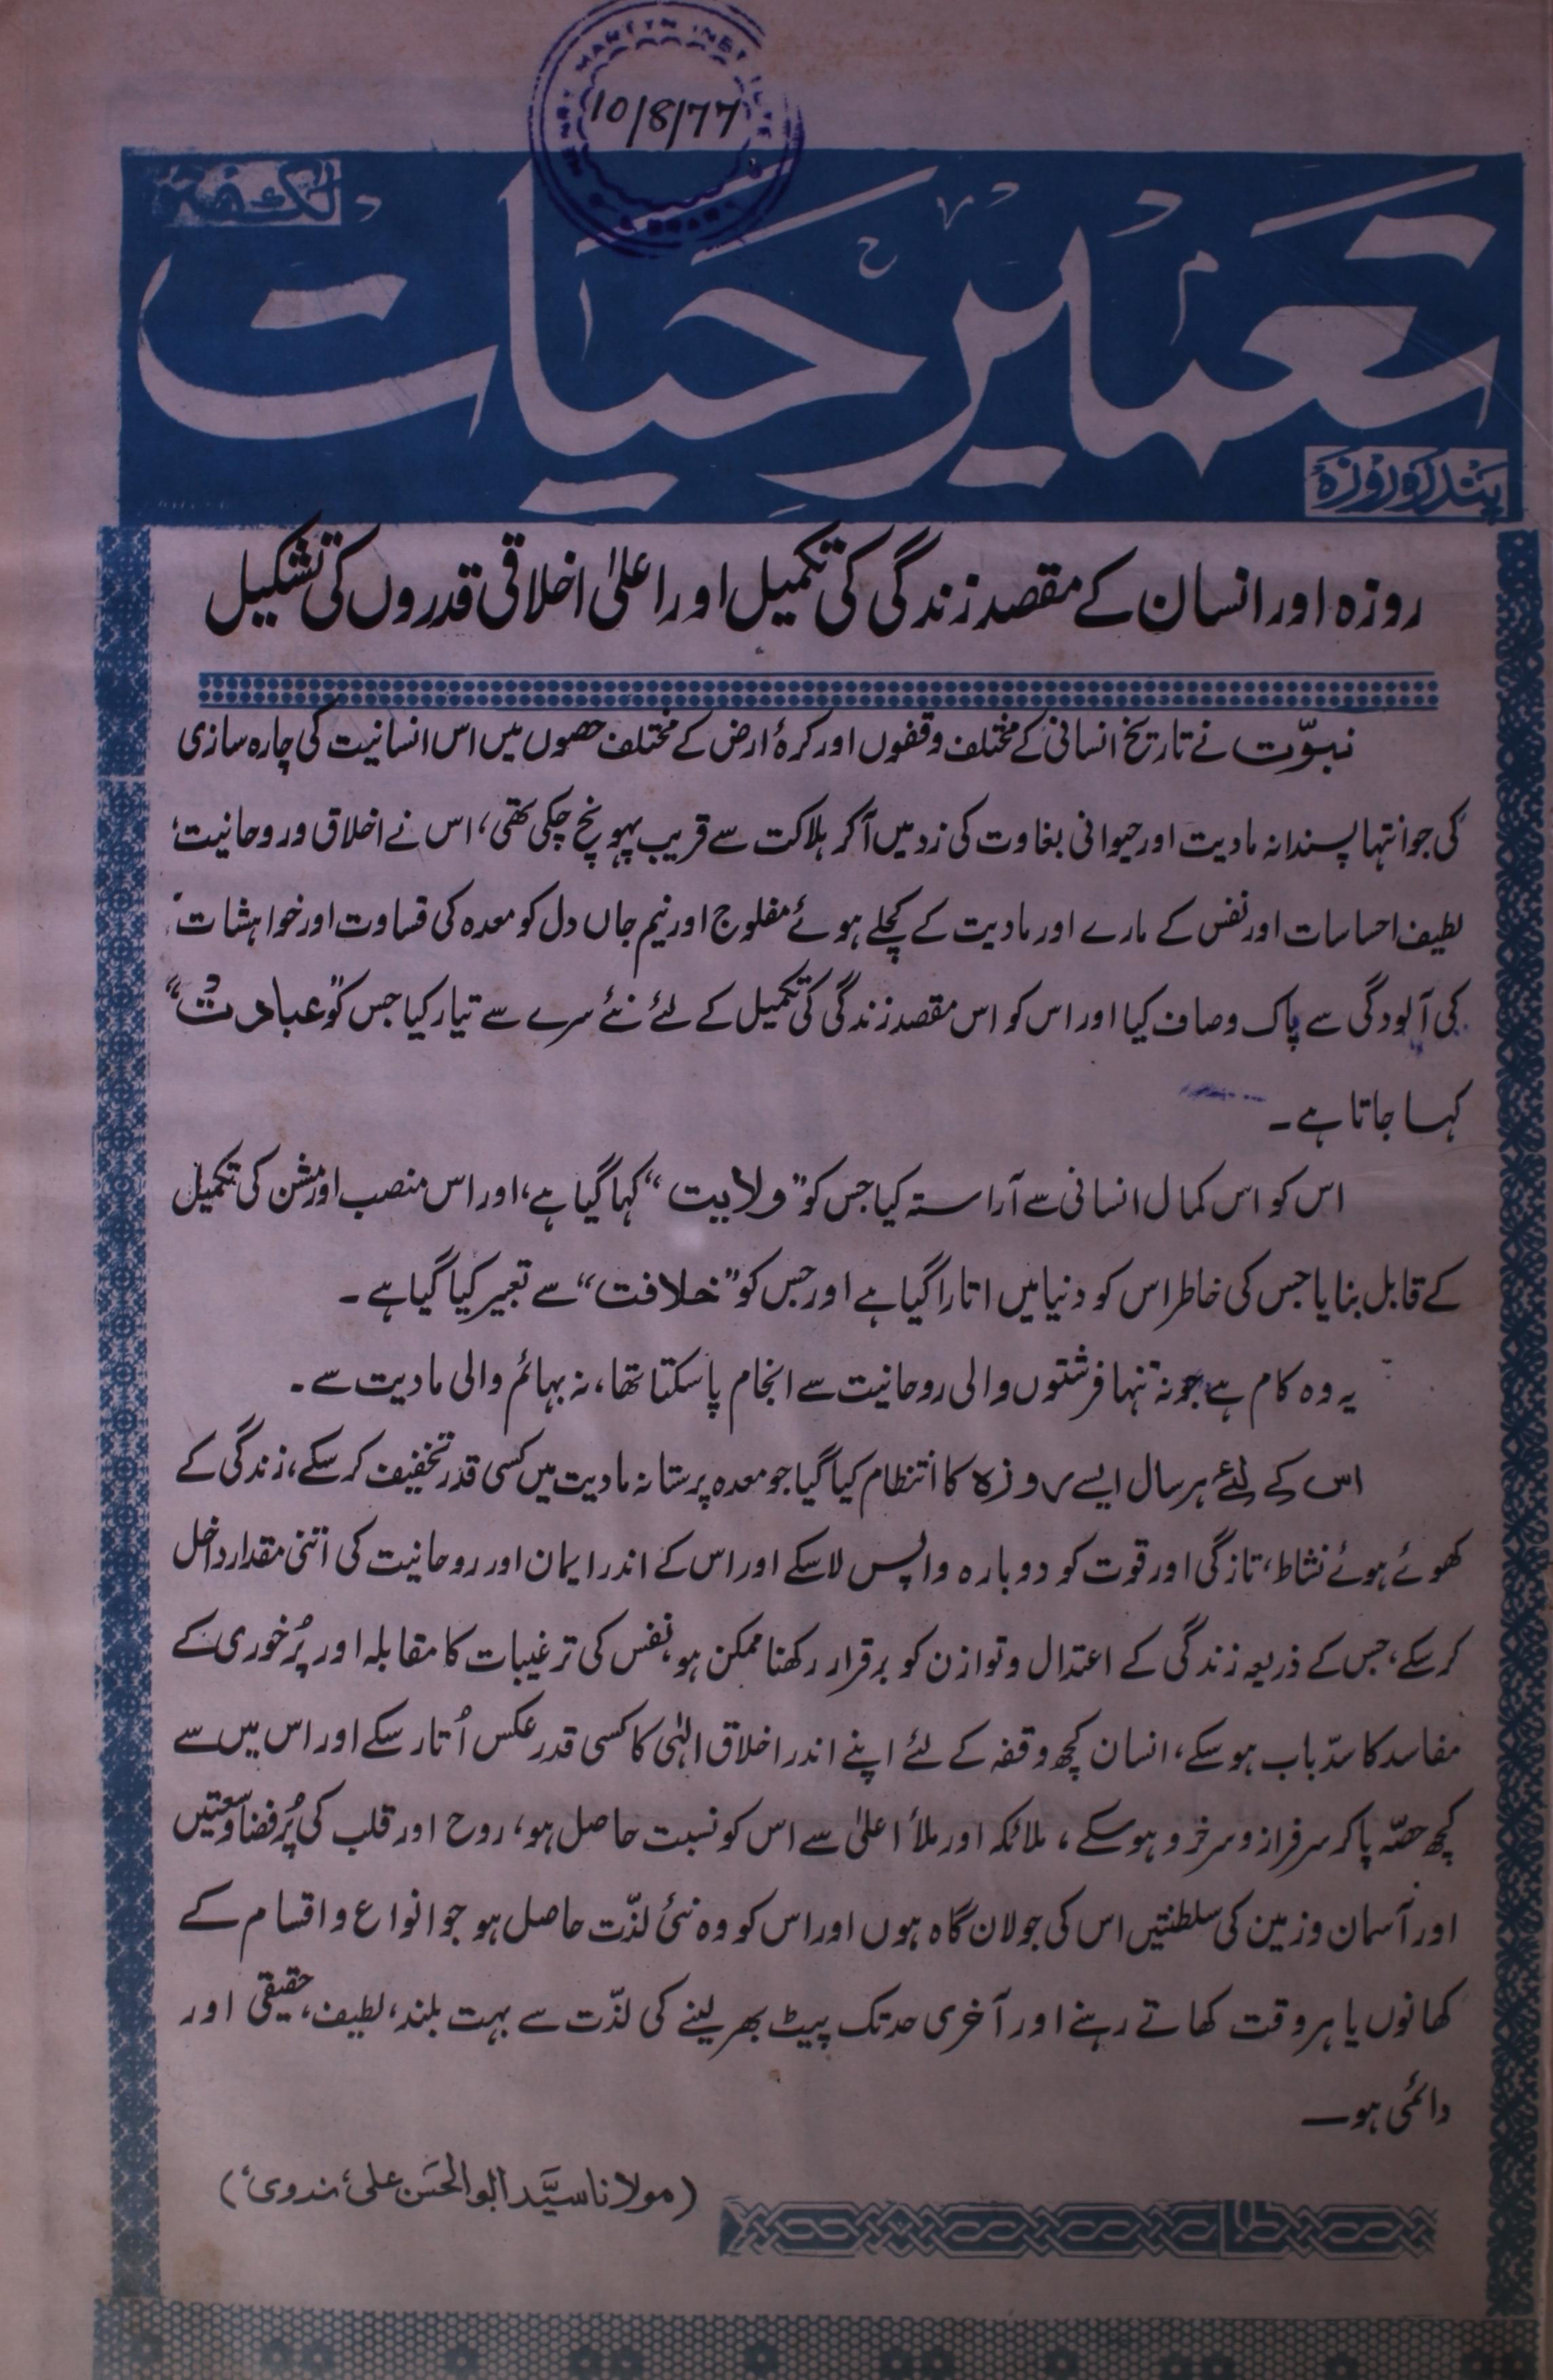 10/8/77
لکھنؤ
تعمیر حیات
پندرہ روزہ
روزہ اور انسان کے مقصد زندگی کی تکمیل اور اعلیٰ اخلاقی قدروں کی تشکیل
نبوّت نے تاریخ انسانی کے مختلف وقفوں اور کرۂ ارض کے مختلف حصوں میں اس انسانیت کی چارہ سازی
کی جو انتہا پسندانہ مادیت اور حیوانی بغاوت کی زد میں آکر ہلاکت سے قریب پہونچ چکی تھی، اس نے اخلاق و روحانیت،
لطیف احساسات اور نفس کے مارے اور مادیت کے کچلے ہوئے مفلوج اور نیم جاں دل کو معدہ کی قساوت اور خواہشات
کی آلودگی سے پاک و صاف کیا اور اس کو اس مقصد زندگی کی تکمیل کے لئے نئے سرے سے تیار کیا جس کو "عبادت"
کہا جاتا ہے۔
اس کو اس کمال انسانی سے آراستہ کیا جس کو "ولایت" کہا گیا ہے، اور اس منصب اور مشن کی تکمیل
کے قابل بنایا جس کی خاطر اس کو دنیا میں اتارا گیا ہے اور جس کو "خلافت" سے تعبیر کیا گیا ہے۔
یہ وہ کام ہے جو نہ تنہا فرشتوں والی روحانیت سے انجام پا سکتا تھا، نہ بہائم والی مادیت سے۔
اس کے لئے ہر سال ایسے روزہ کا انتظام کیا گیا جو معدہ پرستانہ مادیت میں کسی قدر تخفیف کر سکے، زندگی کے
کھوئے ہوئے نشاط، تازگی اور قوت کو دوبارہ واپس لا سکے اور اس کے اندر ایمان اور روحانیت کی اتنی مقدار داخل
کر سکے، جس کے ذریعہ زندگی کے اعتدال و توازن کو برقرار رکھنا ممکن ہو، نفس کی ترغیبات کا مقابلہ اور پُرخوری کے
مفاسد کا سدّباب ہو سکے، انسان کچھ وقفہ کے لئے اپنے اندر اخلاق الٰہی کا کسی قدر عکس اُتار سکے اور اس میں سے
کچھ حصّہ پا کر سرفراز و سرخرو ہو سکے، ملائکہ اور ملأ اعلیٰ سے اس کو نسبت حاصل ہو، روح اور قلب کی پُرفضا وسعتیں
اور آسمان و زمین کی سلطنتیں اس کی جولان گاہ ہوں اور اس کو وہ نئی لذّت حاصل ہو جو انواع و اقسام کے
کھانوں یا ہر وقت کھاتے رہنے اور آخری حد تک پیٹ بھر لینے کی لذّت سے بہت بلند، لطیف، حقیقی اور
دائمی ہو۔
(مولانا سیّد ابوالحسن علی ندوی)